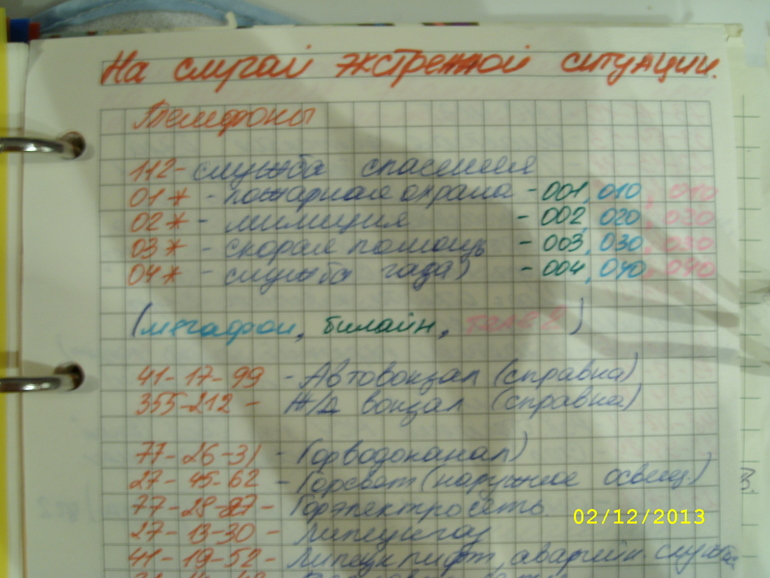 На случай экстренной ситуации.
Телефоны
112- служба спасения
01* - пожарная охрана - 001, 010, 010
02* - милиция - 002, 020, 020
03* - скорая помощь - 003, 030, 030
04* - служба газа) - 004, 040, 040
(мегафон, билайн, теле2)
41-17-99 - Автовокзал (справка)
355-212 - Ж/Д вокзал (справка)
77-26-31 - Горводоканал)
27-45-62 - Горсвет (наружное освещ.)
77-28-27 - Горэлектросеть
27-13-30 - Липецкгаз
41-19-52 - Липецклифт, аварийн служба
3.
02/12/2013